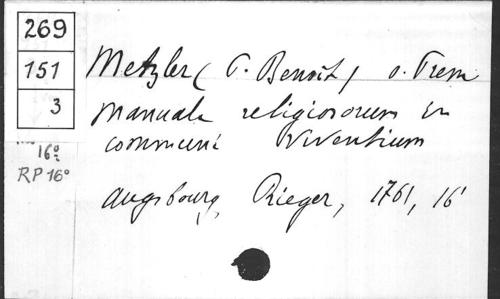 269
151
3
16º
RP 16º
Metzler (P. Benoît) o. Prem
Manuale religiosorum in
communi viventium
Augsbourg, Rieger, 1761, 16º